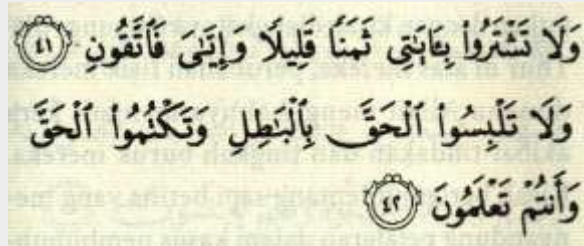 وَلَا تَشْتَرُوا۟ بِـَٔايَـٰتِى ثَمَنًا قَلِيلًا وَإِيَّـٰىَ فَٱتَّقُونِ ٤١
وَلَا تَلْبِسُوا۟ ٱلْحَقَّ بِٱلْبَـٰطِلِ وَتَكْتُمُوا۟ ٱلْحَقَّ
وَأَنتُمْ تَعْلَمُونَ ٤٢